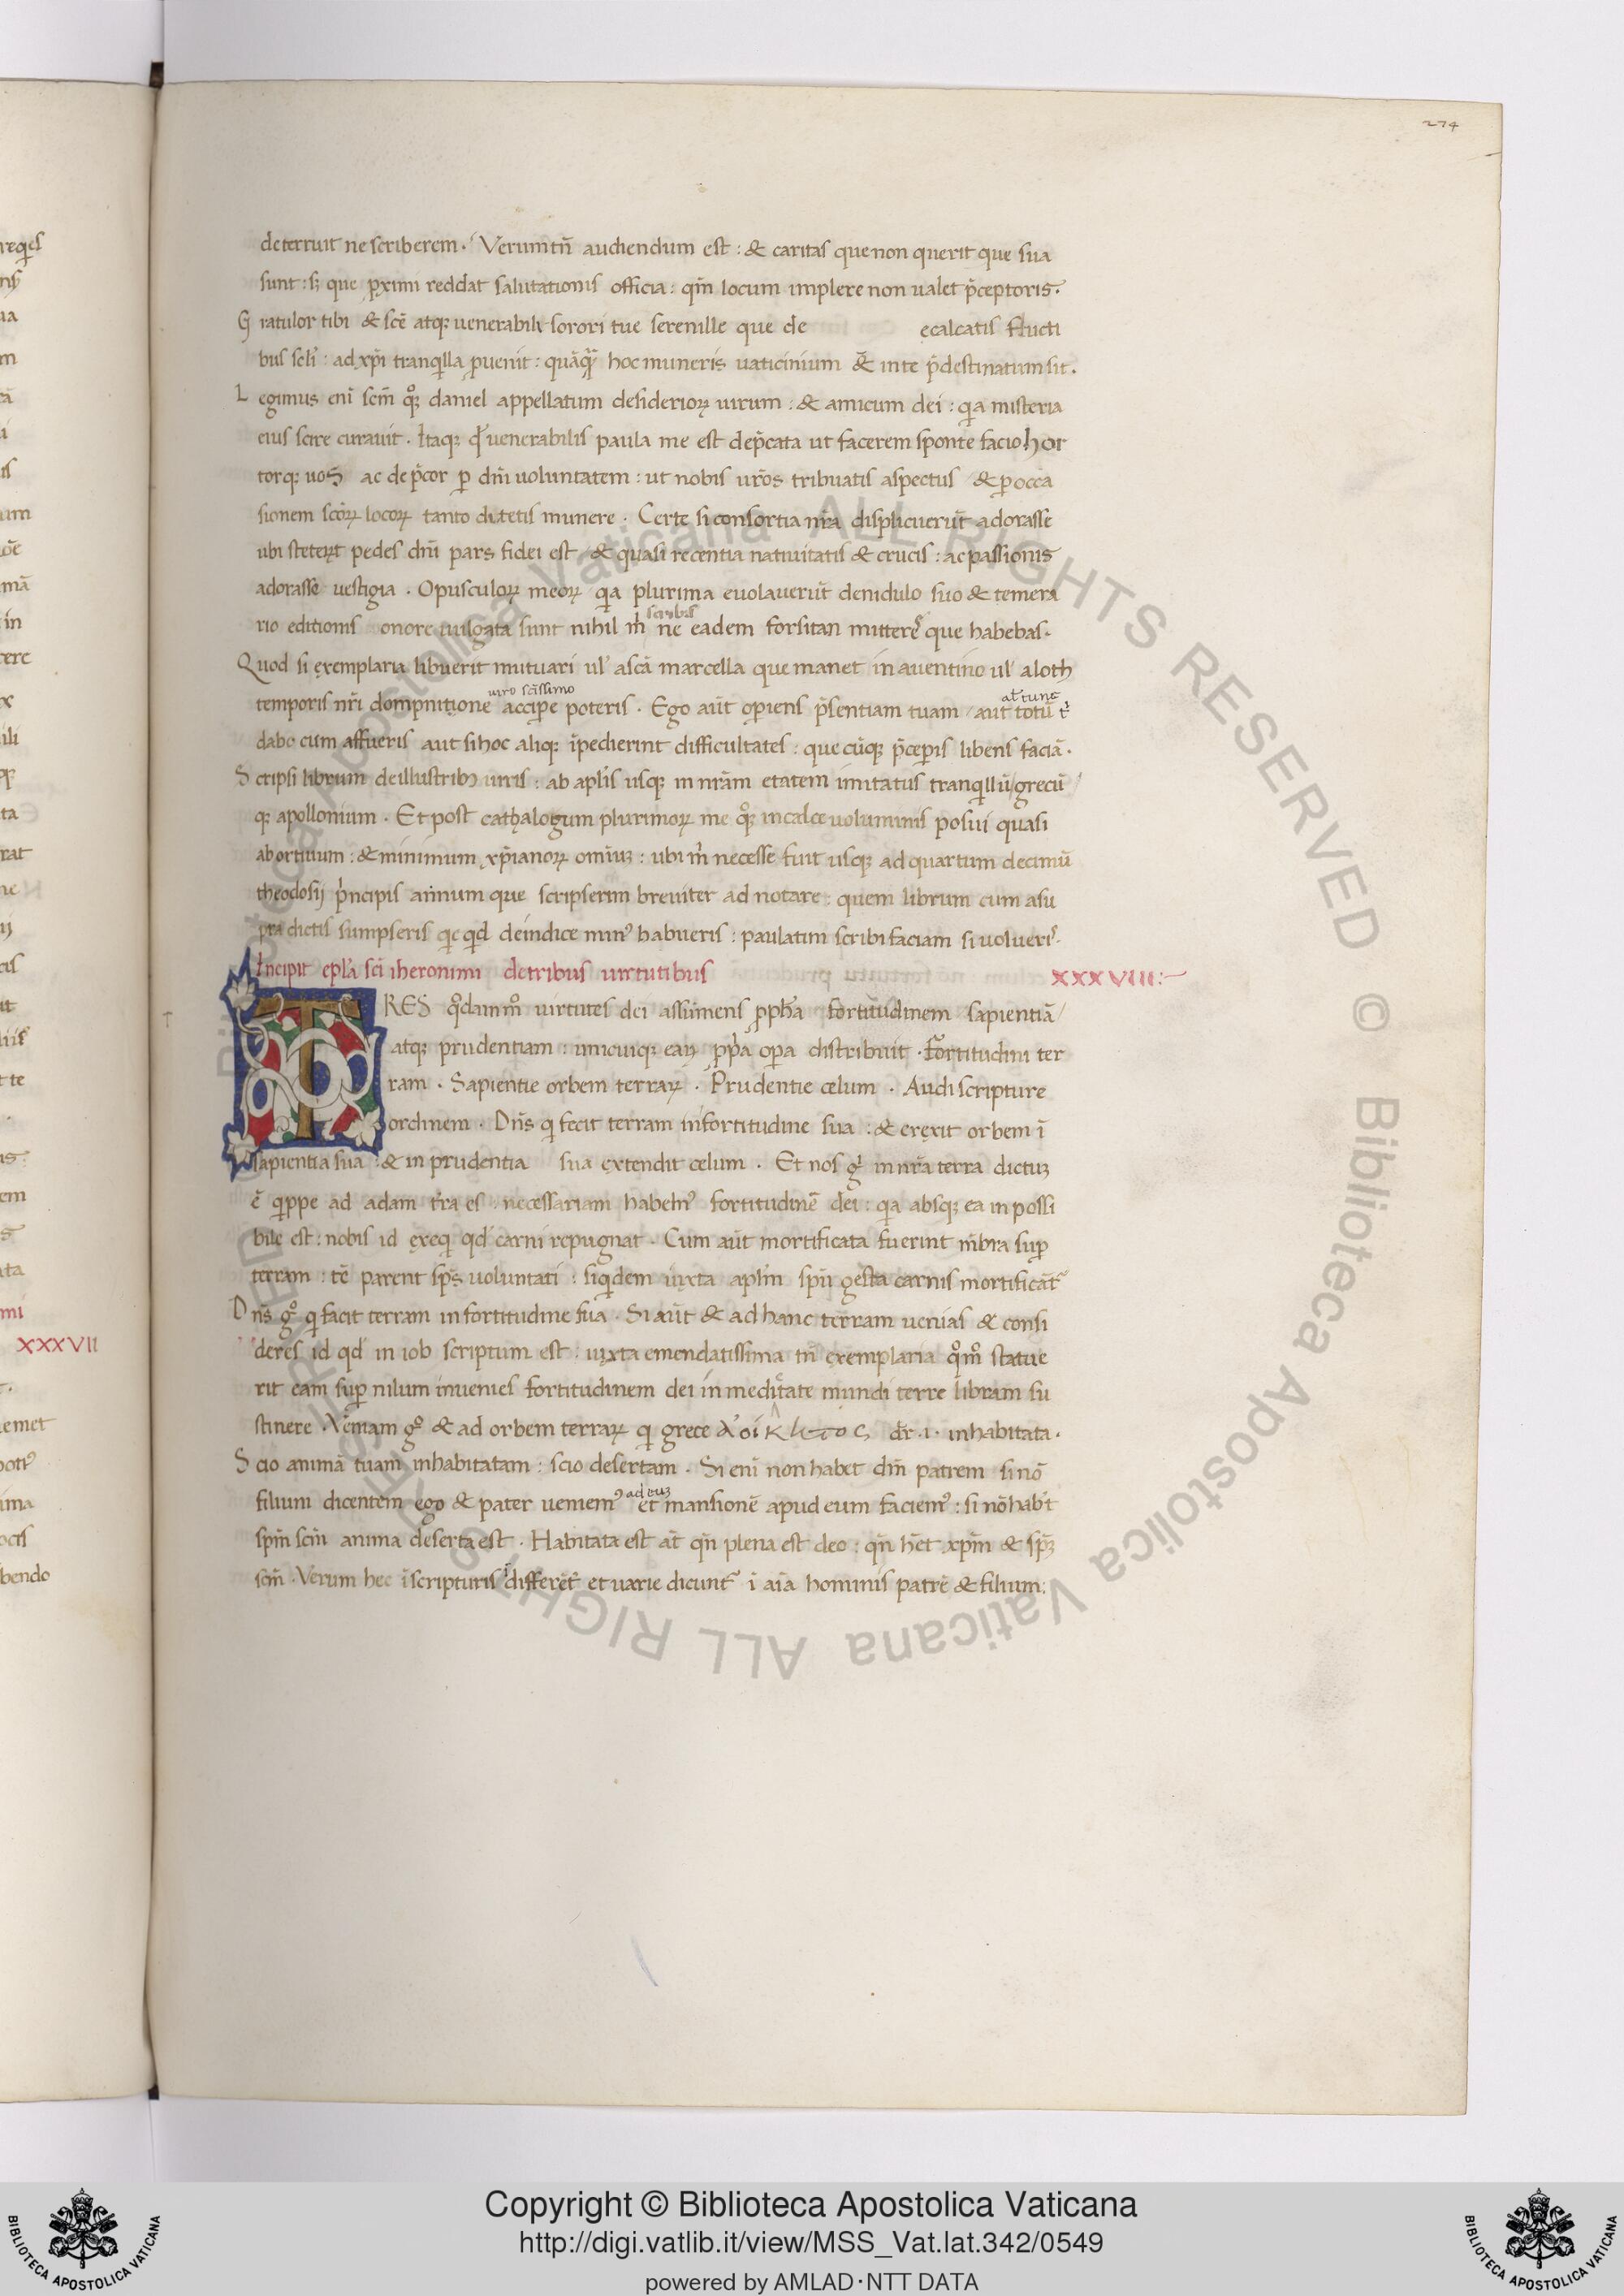 274
deterruit ne scriberem. Verumtn̄ audiendum est: & caritas que non querit que sua
sunt: sꝫ que ꝓximi reddat salutationis officia: qm̄ locum implere non ualet p̄ceptoris.
Gratulor tibi & scē atqꝫ venerabili sorori tue serenille que de ecalcatis flucti
bus scli: ad xp̄i tranqilla peruenit: quāqꝫ hoc muneris uaticinium & in te p̄destinatum sit.
Legimus eni scm̄ qͦꝫ daniel appellatum desiderioꝝ uirum: & amicum dei: qia misteria
eius scire curauit. Itaqꝫ qd̄ venerabilis paula me est dep̄cata ut facerem sponte facio hor
torqꝫ uos ac dep̄cor ꝑ dn̄i uoluntatem: ut nobis ur̄os tribuatis aspectus & ꝑ occa
sionem scōꝝ locoꝝ tanto ditetis munere. Certe si consortia nr̄a displicuerūt adorasse
ubi steterūt pedes dn̄i pars fidei est & quasi recentia natiuitatis & crucis: ac passionis
adorasse uestigia. Opusculoꝝ meoꝝ qia plurima euolauerūt de nidulo suo & temera
rio editionis onore uulgata sunt nihil m̄ scribis ne eadem forsitan mitterē que habebas.
Quod si exemplaria libuerit mutuari ul' a scā marcella que manet in auentino ul' a loth
temporis nr̄i dompnitione uiro scissimo accipe poteris. Ego aūt opiens p̄sentiam tuam aut totū at tunc
dabo cum affueris aut si hoc aliqꝫ īpedierint difficultates: que cūqꝫ p̄ceperis libens faciā.
Scripsi librum de illustribꝫ uiris: ab apl'is usqꝫ in nr̄am etatem imitatus tranqillū/grecū
qꝫ apollonium. Et post cathalogum plurimoꝝ me qͦꝫ in calce uoluminis posui quasi
abortiuum: & minimum xp̄ianoꝝ omniuꝫ: ubi m̄ necesse fuit usqꝫ ad quartum decimū
theodosij p̄ncipis annum que scripserim breuiter adnotare: quem librum cum a su
pra dictis sumpseris qicqid de indice min' habueris: paulatim scribi faciam si uolueris.
Incipit epl'a sci iheronimi de tribus uirtutibus XXXVIII:
TRES qͦdammͦ uirtutes dei assumens ꝓph̄a fortitudinem sapientiā/
atqꝫ prudentiam: unicuiqꝫ eaꝝ ꝓp̄a opa distribuit. Fortitudini ter
ram. Sapientie orbem terraꝝ. Prudentie celum. Audi scripture
ordinem. Dn̄s qi fecit terram in fortitudine sua: & erexit orbem ī
sapientia sua: & in prudentia sua extendit celum. Et nos gͦ in nr̄a terra dictuꝫ
ē qippe ad adam tr̄a es necessariam habem' fortitudinē dei: qia absqꝫ ea inpossi
bile est: nobis id exeqi qd' carni repugnat. Cum aūt mortificata fuerint mbra sup
terram: tē parent sp̄s uoluntati: siqidem iuxta aplm̄ spū gesta carnis mortificāt
Dn̄s gͦ qi facit terram in fortitudine sua. Si aūt & ad hanc terram uenias & consi
deres id qd' in iob scriptum est: iuxta emendatissima tn̄ exemplaria qͦmͦ statue
rit eam sup nilum inuenies fortitudinem dei in meditate mundi terre libram su
stinere. Veniam gͦ & ad orbem terraꝝ qi grece dr̄ .i. inhabitata.
Scio animā tuam inhabitatam: scio desertam. Si eni non habet dm̄ patrem si nō
filium dicentem ego & pater ueniem' ad euꝫ et mansionē apud eum faciem': si nō habꝫt
spm̄ scm̄ anima deserta est. Habitata est at̄ qn̄ plena est deo: qn̄ hēt xpm̄ & spꝫ
scm̄. Verum hec ī scripturis differēt' et uarie dicunt' ī aīa hominis patrē & filium:
XXXVII
Copyright © Biblioteca Apostolica Vaticana
http://digi.vatlib.it/view/MSS_Vat.lat.342/0549
powered by AMLAD·NTT DATA
BIBLIOTECA APOSTOLICA VATICANA
BIBLIOTECA APOSTOLICA VATICANA